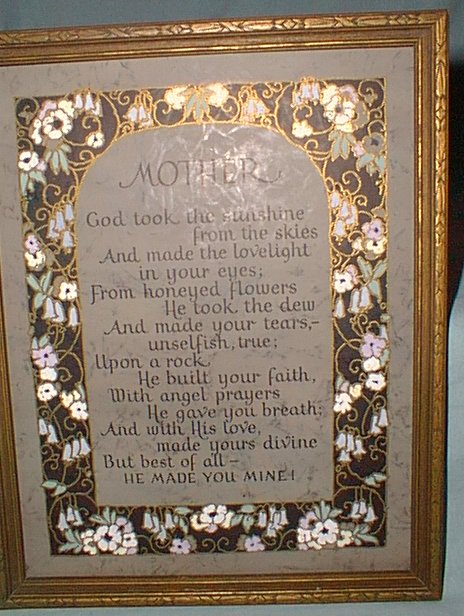 MOTHER
God took the sunshine
from the skies
And made the lovelight
in your eyes;
From honeyed flowers
He took the dew
And made your tears,-
unselfish, true;
Upon a rock
He built your faith,
With angel prayers
He gave you breath;
And with His love,
made yours divine
But best of all-
HE MADE YOU MINE!